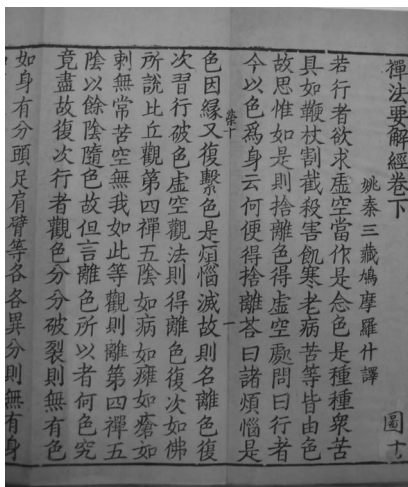 禪法要解經卷下
姚秦三藏鳩摩羅什譯
圖十
若行者欲求虛空當作是念色是種種衆苦
具如鞭杖割截殺害飢寒老病苦等皆由色
故思惟如是則捨離色得虛空處問曰行者
今以色爲身云何便得捨離荅曰諸煩惱是
色因緣又復繫色是煩惱滅故則名離色復
次習行破色虛空觀法則得離色復次如佛
所說比丘觀第四禪五陰如病如癰如瘡如
刺無常苦空無我如此等觀則離第四禪五
陰以餘陰隨色故但言離色所以者何色究
竟盡故復次行者觀色分分破裂則無有色
如身有分頭足有臂等各各異分則無有身